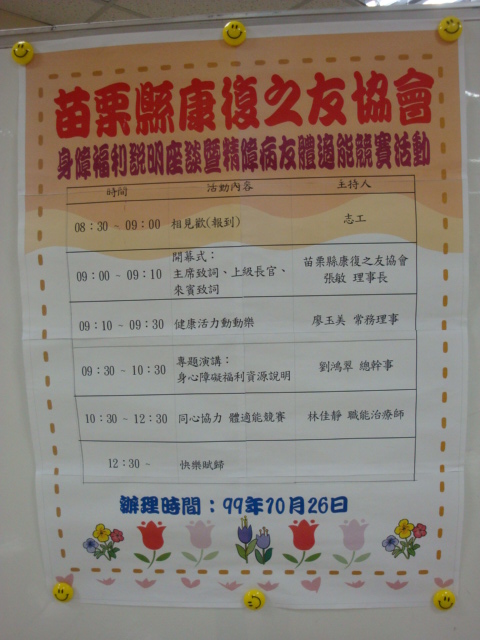 苗栗縣康復之友協會
身障福利說明座談暨精障病友體適能競賽活動
時間 活動內容 主持人
08：30 ~ 09：00 相見歡(報到) 志工
開幕式：
09：00 ~ 09：10 主席致詞、上級長官、 苗栗縣康復之友協會
來賓致詞 張敏 理事長
09：10 ~ 09：30 健康活力動動樂 廖玉美 常務理事
專題演講：
09：30 ~ 10：30 身心障礙福利資源說明 劉鴻翠 總幹事
10：30 ~ 12：30 同心協力 體適能競賽 林佳靜 職能治療師
12：30 ~ 快樂賦歸
辦理時間：99年10月26日